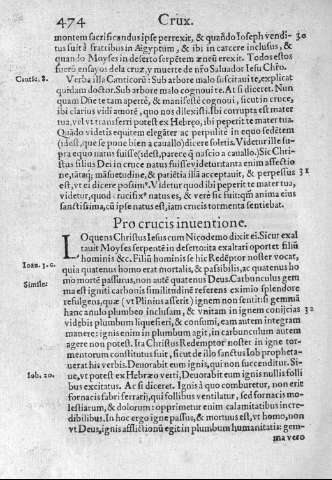 474 Crux.
montem sacrificandus ipse perrexit, & quãdo Ioseph vendi- 30
tus fuit à fratribus in Aegyptum, & ibi in carcere inclusus, &
quando Moyses in deserto serpẽtem æneũ erexit. Todos estos
fuerõ ensayos dela cruz, y muerte de nr̃o Saluador Iesu Chrõ.
Cantic. 8. Verba illa Canticorũ: Sub arbore malo suscitaui te, explicat
quidam doctor. Sub arbore malo cognoui te. At si diceret. Nun
quam Dñe te tam apertè, & manifestè cognoui, sicut in cruce,
ibi clarius vidi amorẽ, quo nos dilexisti. Ibi corrupta est mater
tua, vel vt transferri potest ex Hebreo, ibi peperit te mater tua.
Quãdo videtis equitem elegãter ac perpulitè in equo sedẽtem
(idest, que se pone bien a cauallo) dicere soletis. Videtur ille su-
pra equo natus fuisse (idest, parece q̃ nascio a cauallo.) Sic Chri-
stus filius Dei in cruce natus fuisse videtur tanta enim affectio
ne, tãtaq; mãsuetudine, & patiẽtia illã acceptauit, & perpessus 31
est, vt ei dicere possim⁹. Videtur quod ibi peperit te mater tua,
videtur, quod crucifix⁹ natus es, & verè sic fuit: q̃m anima eius
sanctissima, cũ ipse natus est, iam crucis tormenta sentiebat.
Pro crucis inuentione.
LOquens Christus Iesus cum Nicodemo dixit ei. Sicut exal
tauit Moyses serpentẽ in deserto ita exaltari oportet filiũ
Ioan. 3. c. hominis &c. Filiũ hominis se hic Redẽptor noster vocat,
quia quatenus homo erat mortalis, & passibilis, ac quatenus ho
mo mortẽ passurus, non autẽ quatenus Deus. Carbunculus gem
Simile: ma est igniti carbonis similitudinẽ referens eximio splendore
resulgens, quæ (vt Plinius asserit) ignem non sentit: si gemmã
hanc anulo plumbeo inclusam, & vnitam in ignem conijcias 32
videbis plumbum liquefieri, & consumi, eam autem integram
manere: ignis enim in plumbum agit, in carbunculum autem
agere non potest. Ita Christus Redemptor noster in igne tor-
mentorum constitutus fuit, sicut de illo sanctus Iob propheta-
uerat his verbis. Deuorabit eum ignis, qui non succenditur. Si-
Iob. 20. ue, vt potest ex Hebræo verti, Deuorabit eum ignis nullis folli
bus excitatus. Ac si diceret. Ignis à quo comburetur, non erit
fornacis fabri ferrarij, qui follibus ventilatur, sed fornacis mo-
lestiarum, & dolorum: opprimetur enim calamitatibus incre-
dibilibus. In hoc ergo igne passus, & mortuus est, vt homo, non
vt Deus, ignis afflictionũ egit in plumbum humanitatis: gem-
ma vero